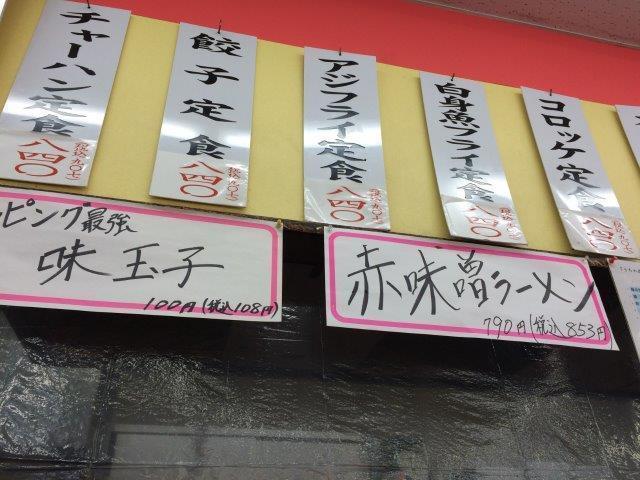 チャーハン定食
八四〇
税込九〇七
餃子定食
八四〇
税込九〇七
アジフライ定食
八四〇
税込九〇七
白身魚フライ定食
八四〇
税込九〇七
コロッケ定食
八四〇
ピング最強
味玉子
100円(税込108円)
赤味噌ラーメン
790円(税込853円)